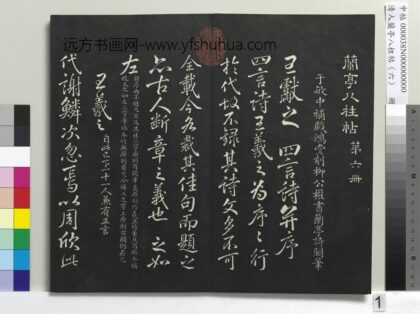 远方书画网-www.yfshuhua.com
中帖 000038N00000000
清人蘭亭八柱帖（六） 冊
蘭亭八柱帖 第六冊
于敏中補戲鴻堂刻柳公權書蘭亭詩闕筆
王獻之 四言詩并序
四言詩王羲之為序序行
於代故不錄其詩文多不可
全載今各裁其佳句而題之
亦古人斷章之義也 之如
左
王羲之 自此已下十一人兼有五言
代謝鱗次忽焉以周欣此
1